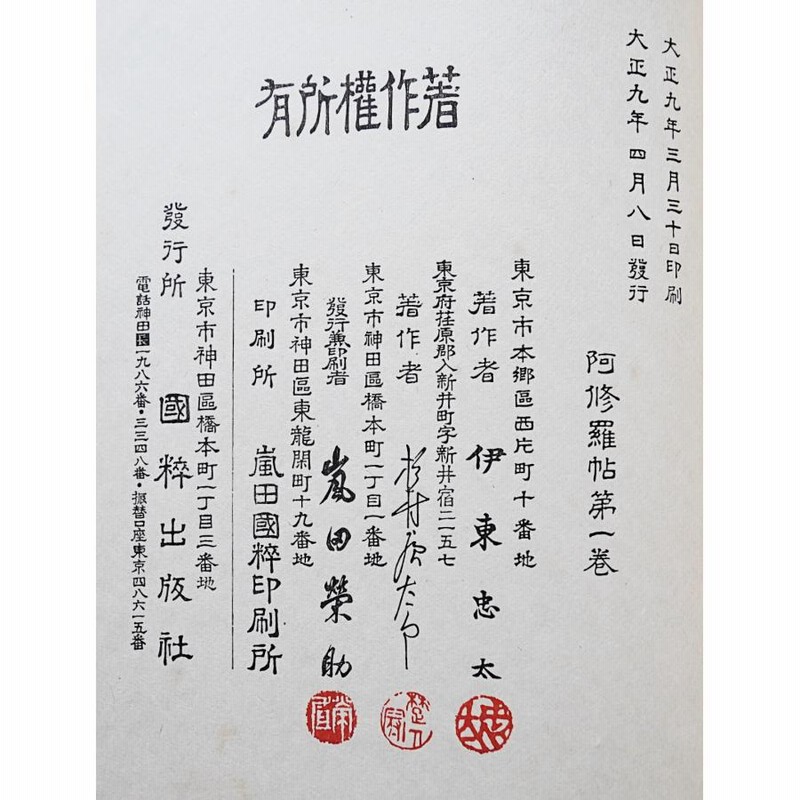 大正九年三月三十日印刷
大正九年四月八日發行
著作權所有
阿修羅帖第一卷
東京市本鄕區西片町十番地
著作者 伊東忠太
東京府荏原郡入新井町字新井宿二一五七
著作者 杉村廣太郎
東京市神田區橋本町一丁目一番地
發行兼印刷者 嵐田榮助
東京市神田區東龍閑町十九番地
印刷所 嵐田國粹印刷所
東京市神田區橋本町一丁目三番地
發行所 國粹出版社
電話神田長一九八六番・三三四八番・振替口座東京四八六一五番